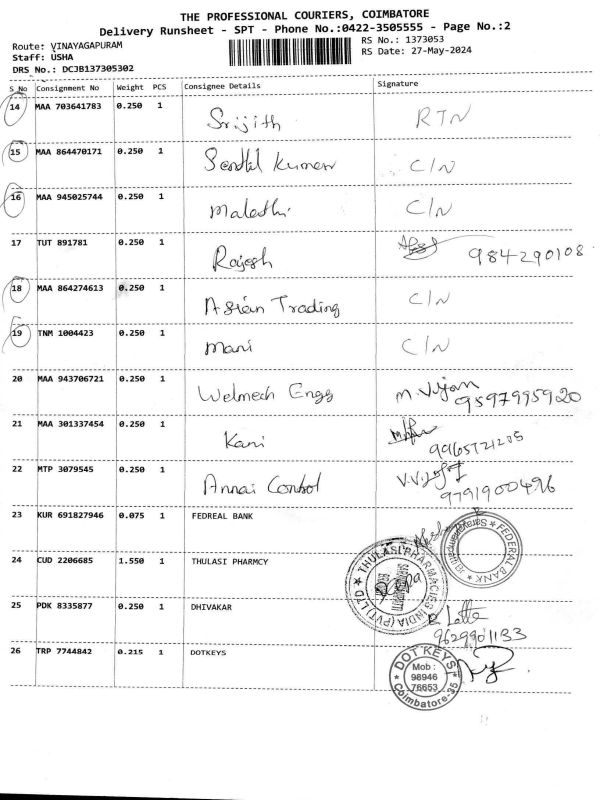 THE PROFESSIONAL COURIERS, COIMBATORE
Delivery Runsheet - SPT - Phone No.:0422-3505555 - Page No.:2
Route: VINAYAGAPURAM RS No.: 1373053
Staff: USHA RS Date: 27-May-2024
DRS No.: DCJB137305302
S No Consignment No Weight PCS Consignee Details Signature
14 MAA 703641783 0.250 1 Srijith RTN
15 MAA 864470171 0.250 1 Senthil Kumar C/N
16 MAA 945025744 0.250 1 Malathi C/N
17 TUT 891781 0.250 1 Rajesh 984290108
18 MAA 864274613 0.250 1 Asian Trading C/N
19 TNM 1004423 0.250 1 Mani C/N
20 MAA 943706721 0.250 1 Welmech Engg M. Vijan 9597995920
21 MAA 301337454 0.250 1 Kani 9965721205
22 MTP 3079545 0.250 1 Annai Control 9791900496
23 KUR 691827946 0.075 1 FEDREAL BANK
FEDERAL BANK
24 CUD 2206685 1.550 1 THULASI PHARMCY
THULASI PHARMACIES INDIA (PVT) LTD
25 PDK 8335877 0.250 1 DHIVAKAR
9629901133
26 TRP 7744842 0.215 1 DOTKEYS
DOT KEYS
Mob :
98946
76653
Coimbatore-35